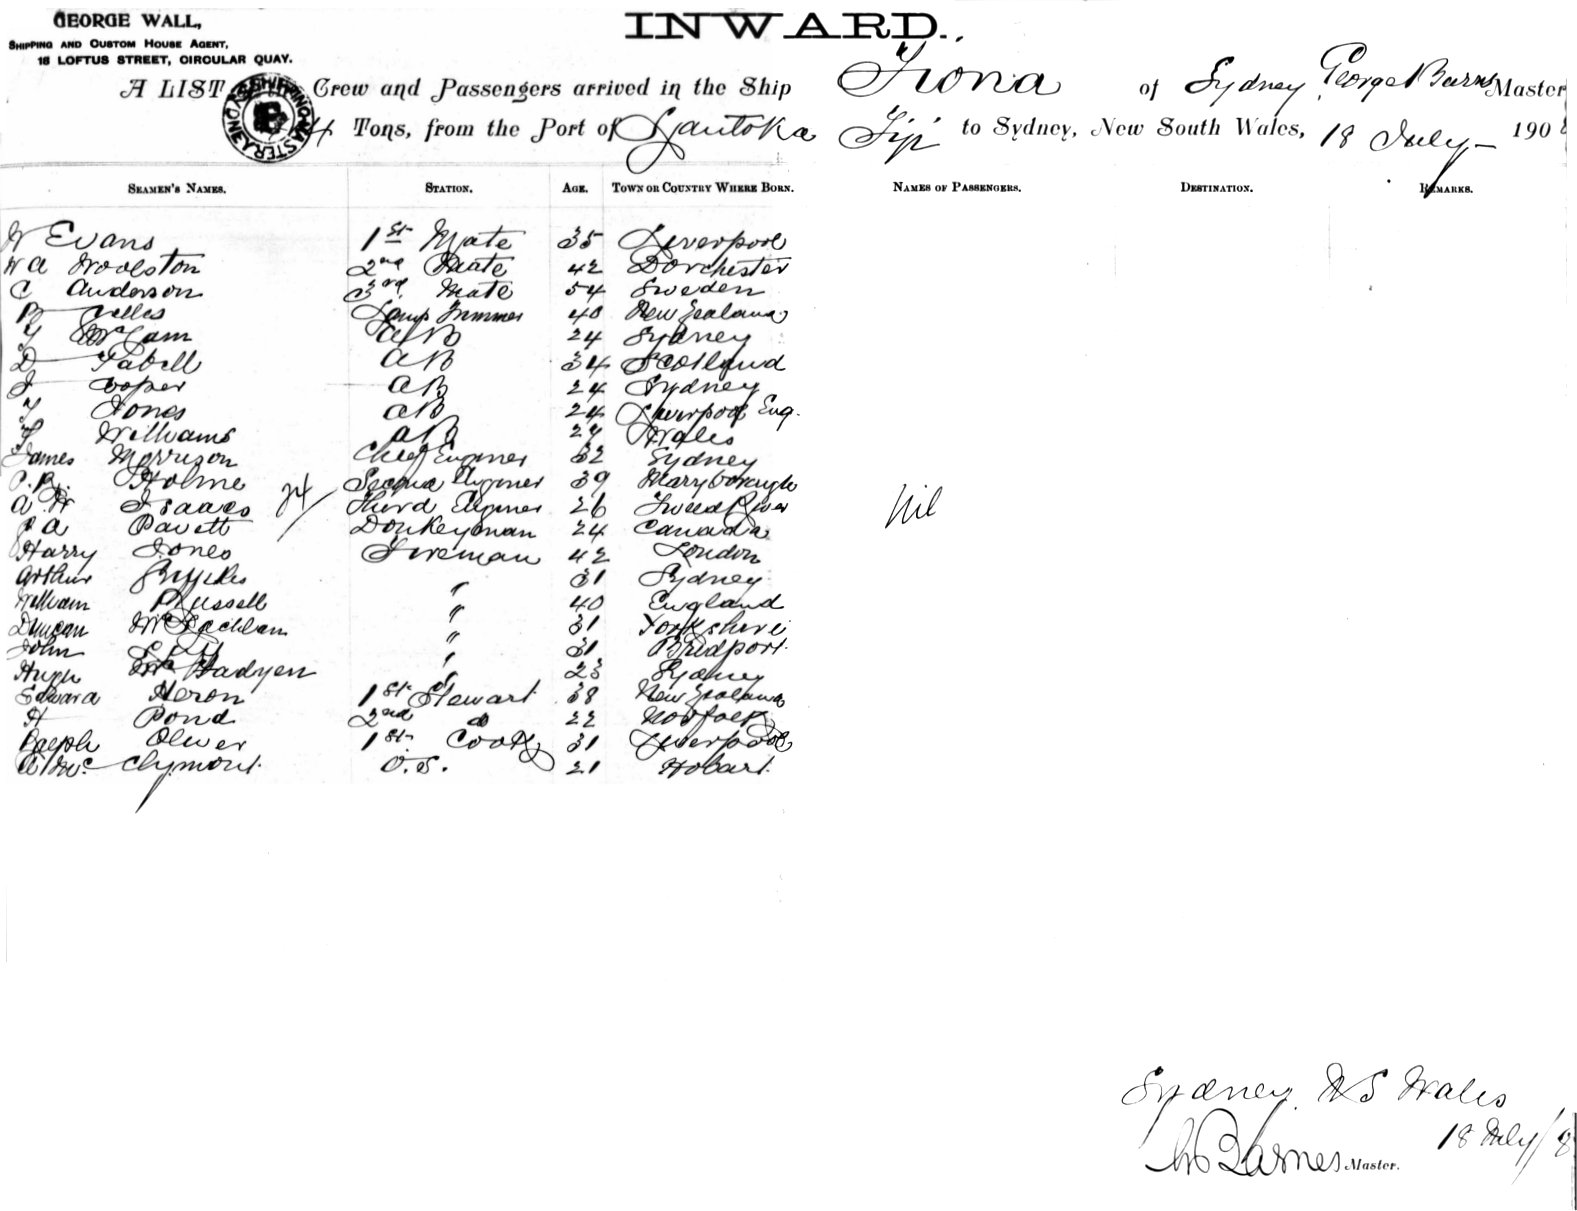 GEORGE WALL,
SHIPPING AND CUSTOM HOUSE AGENT,
18 LOFTUS STREET, CIRCULAR QUAY.
INWARD.
A LIST Crew and Passengers arrived in the Ship Fiona of Sydney George Barns Master
Tons, from the Port of Lautoka Fiji to Sydney, New South Wales, 18 July 190
SEAMEN'S NAMES. STATION. AGE. TOWN OR COUNTRY WHERE BORN. NAMES OF PASSENGERS. DESTINATION. REMARKS.
W Evans 1st Mate 35 Liverpool
W A Woolston 2nd Mate 42 Dorchester
C Anderson 3rd Mate 54 Sweden
Lamp Trimmer 40 New Zealand
AB 24 Sydney
D Tabell AB 34 Scotland
J Cooper AB 24 Sydney
Jones AB 24 Liverpool Eng.
Williams AB Wales
James Morrison Chief Engineer 32 Sydney
Holme Second Engineer 39 Maryborough
A H Isaacs 24 Third Engineer 26 Tweed River
Nil
Pavett Donkeyman 24 Canada
Harry Jones Fireman 42 London
Arthur 31 Sydney
William Russell " 40 England
Duncan McLachlan " 31 Yorkshire
John " 31 Bridport
Hugh McFadyen " 23 Sydney
Edward Heron 1st Stewart 38 New Zealand
H Pond 2nd do 22 Norfolk
Ralph Oliver 1st Cook 31 Liverpool
A McClymont O.S. 21 Hobart
Sydney N S Wales
18 July/8
Barnes Master.